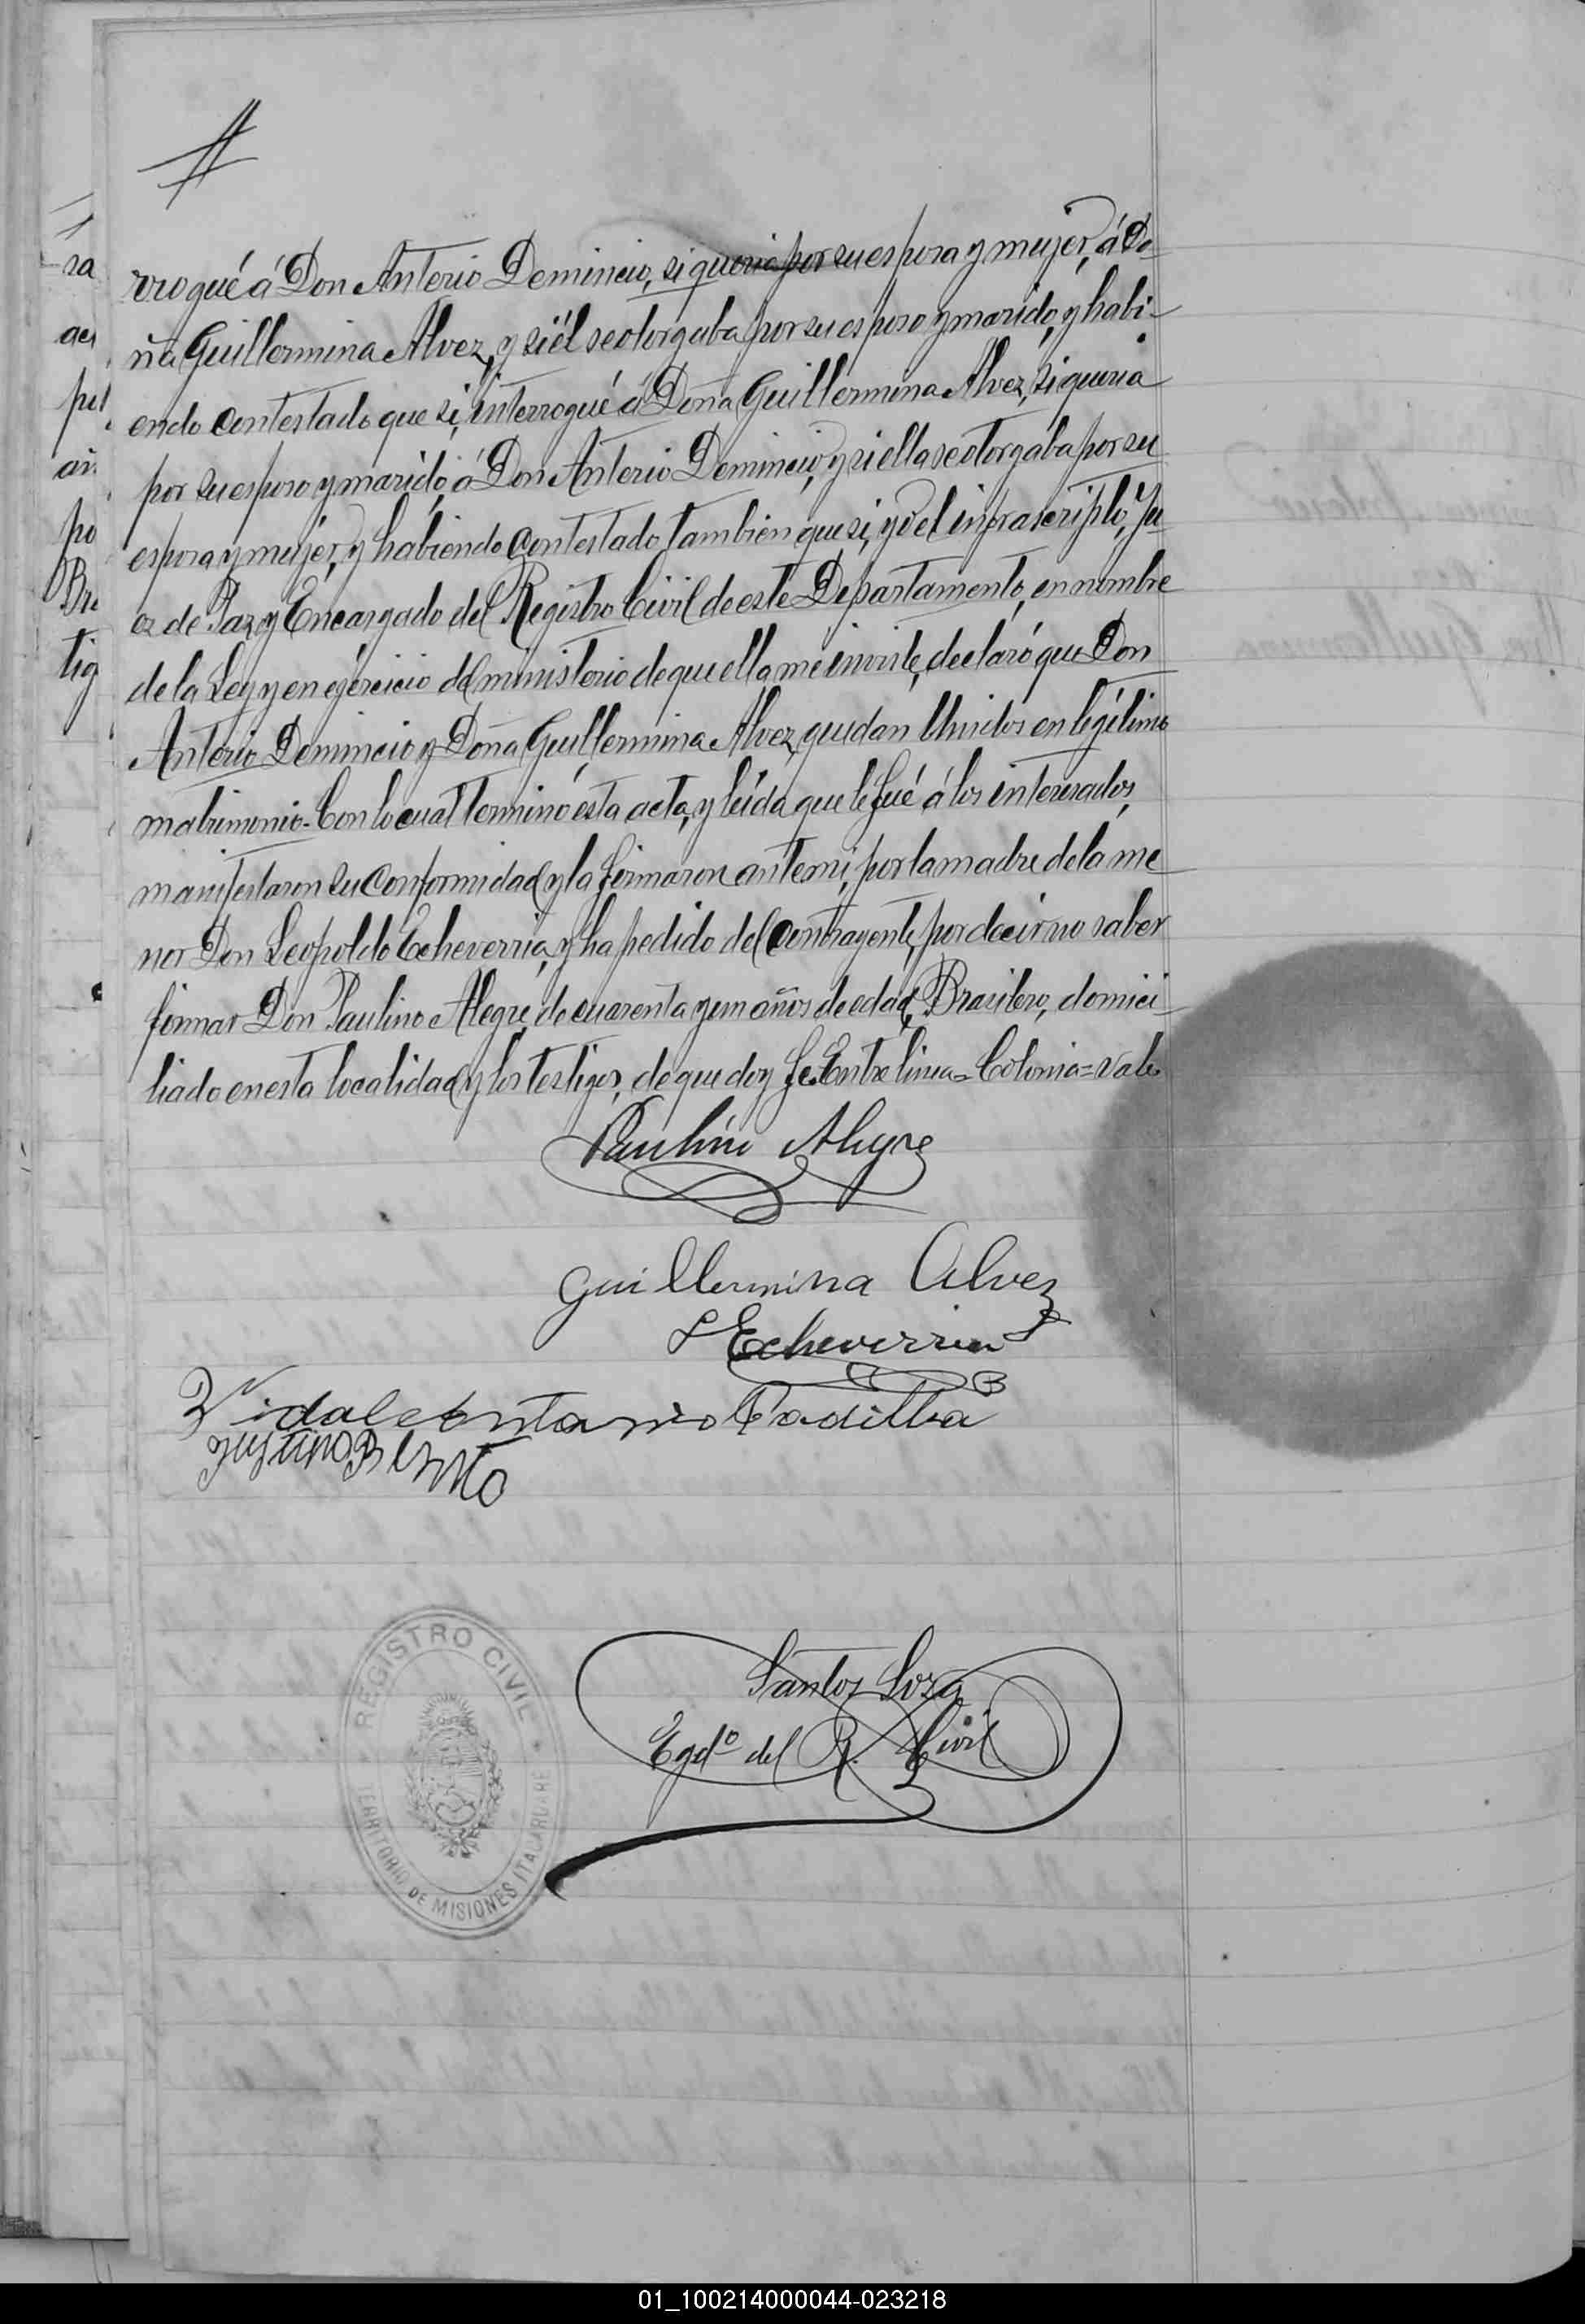 rrogué á Don Anterio Demincio, si queria por su esposa y mujer, á Do-
ña Guillermina Alvez, y si él se otorgaba por su esposo y marido, y habi-
endo contestado que si, interrogué á Doña Guillermina Alvez, si queria
por su esposo y marido, á Don Anterio Demincio, y si ella se otorgaba por su
esposa y mujer, y habiendo contestado tambien que si, yo el infrascripto, Ju-
ez de Paz y Encargado del Registro Civil de este Departamento, en nombre
de la Ley y en ejercicio del ministerio de que ella me inviste, declaró que Don
Anterio Demincio y Doña Guillermina Alvez, quedan Unidos en legítimo
matrimonio. Con lo cual terminó esta acta, y leida que le fué á los interesados,
manifestaron su conformidad y la firmaron ante mi, por la madre de la me
nor Don Leopoldo Echeverria, y ha pedido del contrayente, por decir no saber
firmar Don Paulino Alegre, de cuarenta y un años de edad, Brasilero, domici-
liado en esta localidad y los testigos, de que doy fe. Entre linea = Colonia = vale
Paulino Alegre
Guillermina Alvez
L Echeverria
Vidal Antonio Padilla
Justino Benito
Santos Loza
Egdo del R. Civil
REGISTRO CIVIL
TERRITORIO DE MISIONES ITACARUARE
ra
pel
po
Bra
tig
01_100214000044-023218